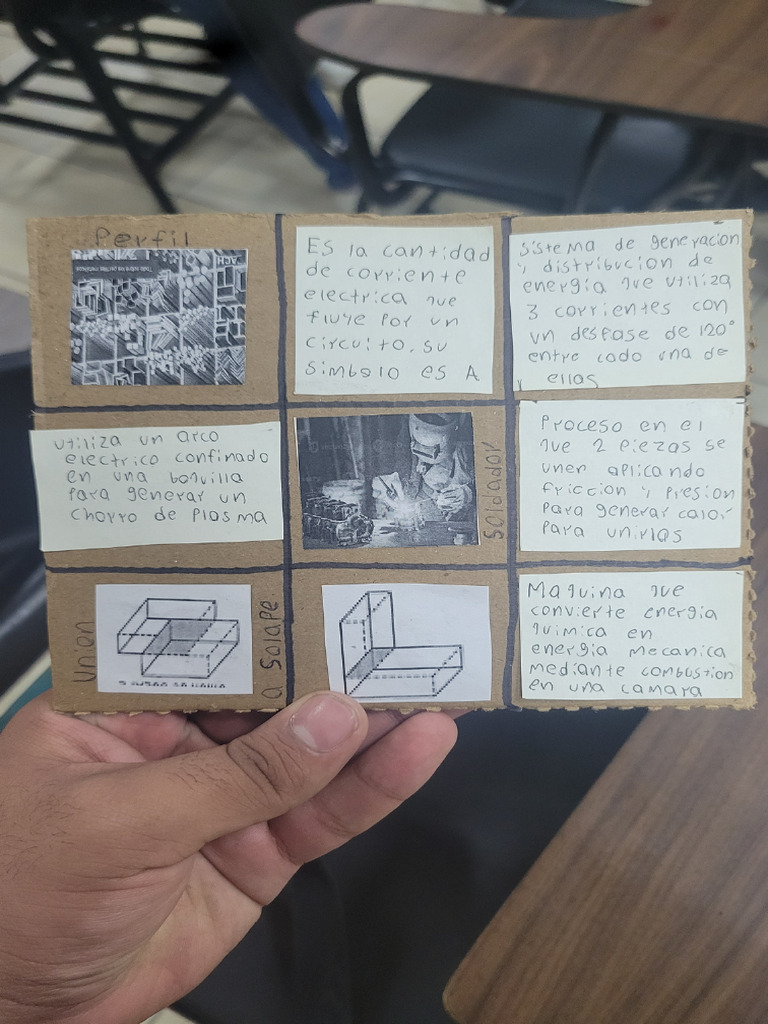 Perfil
ACH
Es la cantidad
de corriente
electrica que
fluye por un
circuito. su
simbolo es A
Sistema de generacion
y distribucion de
energia que utiliza
3 corrientes con
un desfase de 120°
entre cada una de
ellas
utiliza un arco
electrico confinado
en una boquilla
para generar un
chorro de plasma
Soldador
Proceso en el
que 2 piezas se
unen aplicando
friccion y presion
para generar calor
para unirlas
Union
a solape
Maquina que
convierte energia
quimica en
energia mecanica
mediante combustion
en una camara